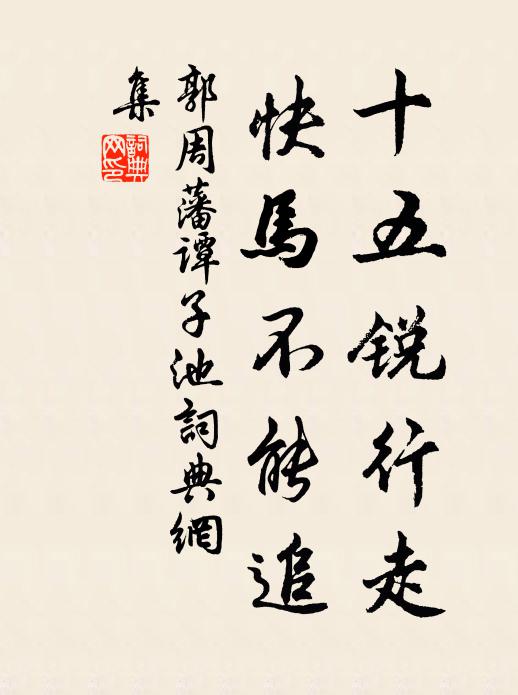 十五锐行走
快馬不能追
郭周藩谭子池詞典網
集
詞典
网印